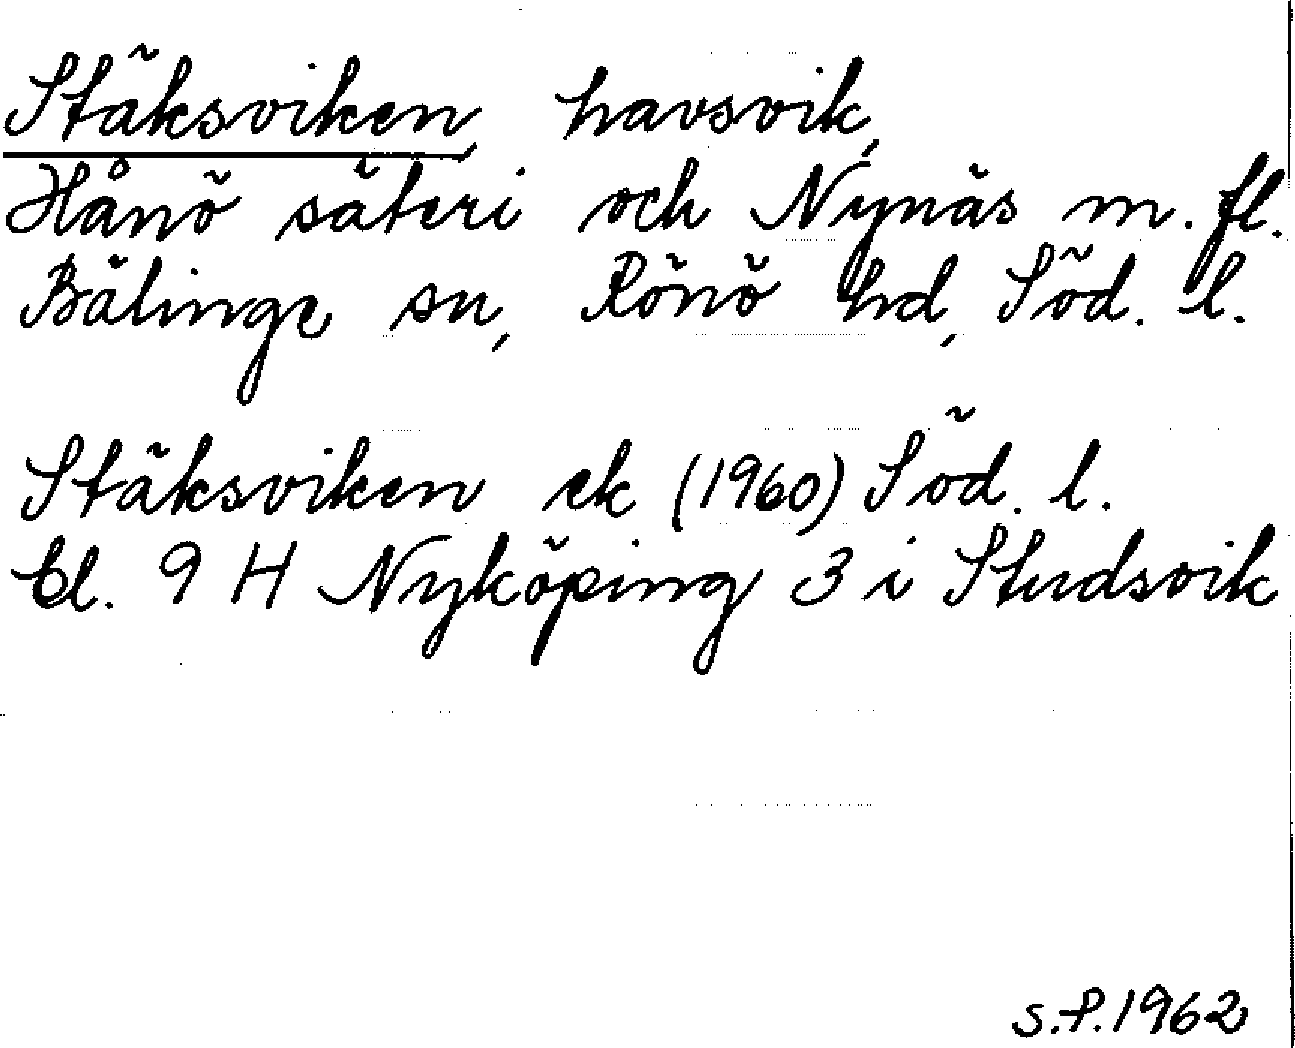 Stäksviken, havsvik,
Hånö säteri och Nynäs m. fl.
Bälinge sn, Rönö hd, Söd. l.
Stäksviken ek (1960) Söd. l.
bl. 9 H Nyköping 3 i Studsvik
S.P. 1962